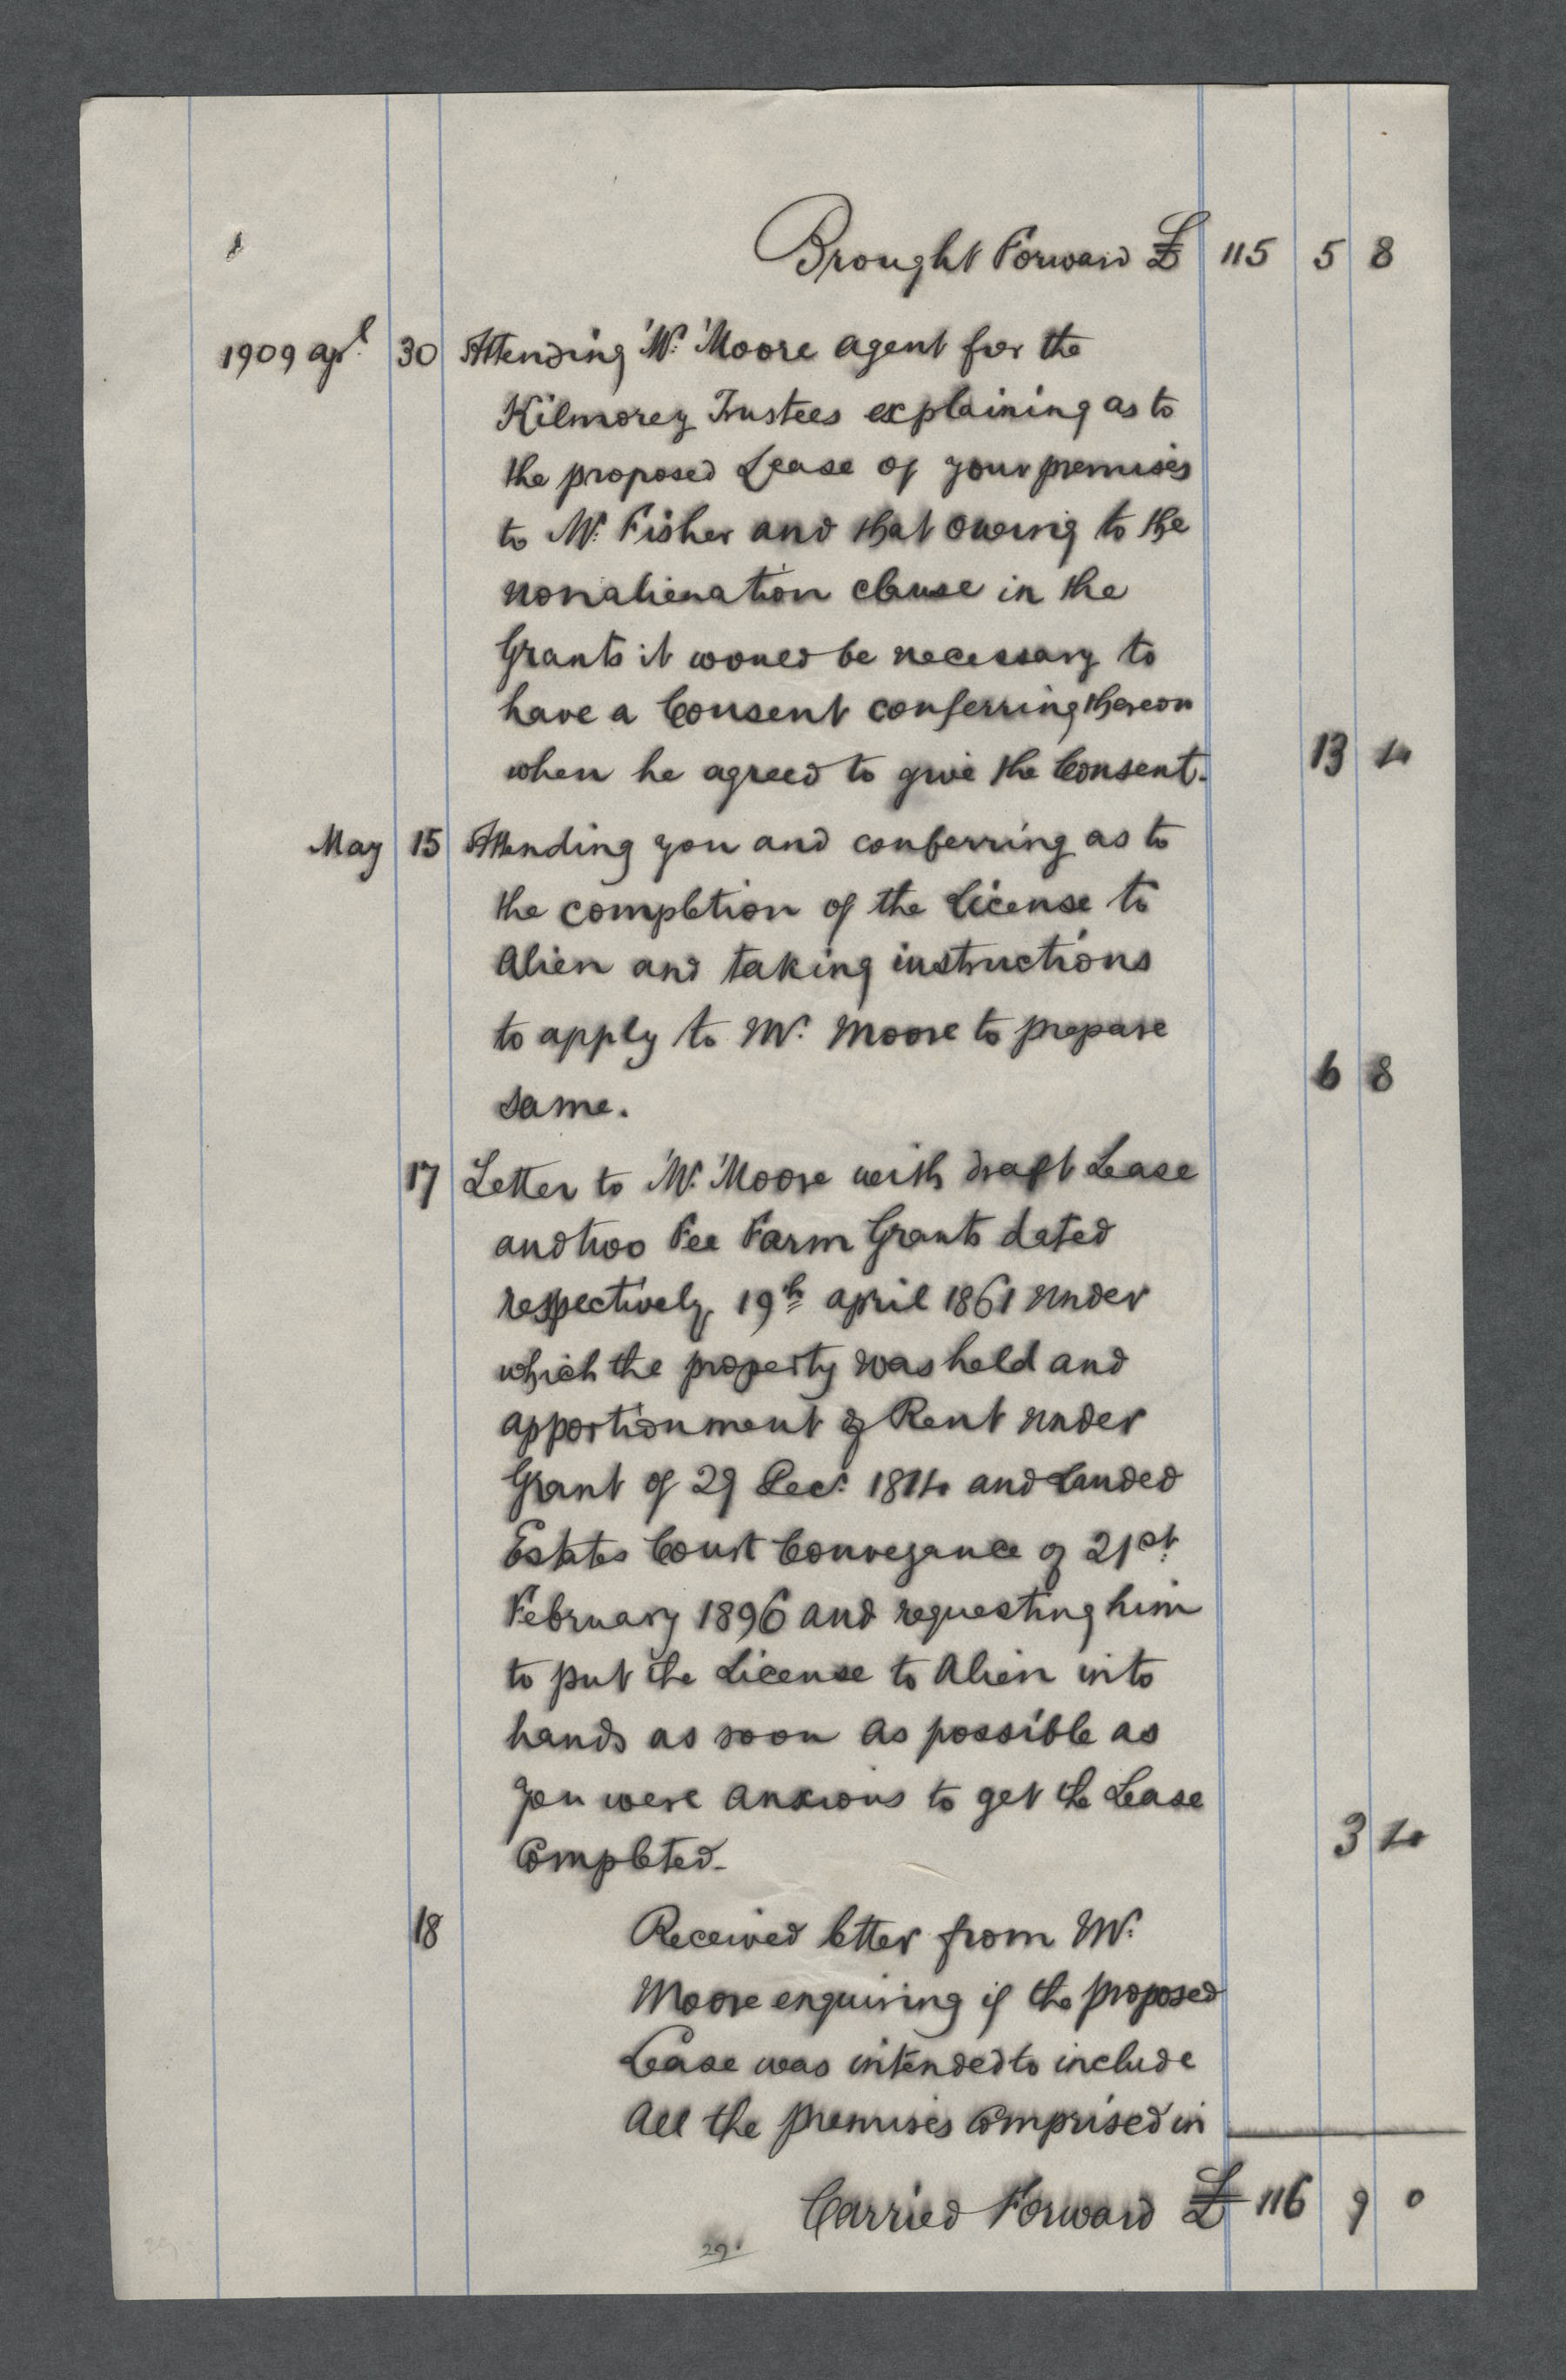 Brought Forward £ 115 5 8
1909 Apl. 30 Attending Mr. Moore agent for the
Kilmorey Trustees explaining as to
the proposed Lease of your premises
to Mr. Fisher and that owing to the
nonalienation clause in the
Grants it would be necessary to
have a Consent conferring thereon
when he agreed to give the Consent. 13 4
May 15 Attending you and conferring as to
the completion of the License to
Alien and taking instructions
to apply to Mr. Moore to prepare
same. 6 8
17 Letter to Mr. Moore with draft Lease
and two Fee Farm Grants dated
respectively 19th April 1861 under
which the property was held and
apportionment of Rent under
Grant of 29 Decr. 1814 and Landed
Estates Court Conveyance of 21st.
February 1896 and requesting him
to put the License to Alien into
hands as soon as possible as
you were anxious to get the Lease
Completed. 3 4
18 Received letter from Mr.
Moore enquiring if the proposed
Lease was intended to include
All the premises Comprised in
Carried Forward £ 116 9 0
29.